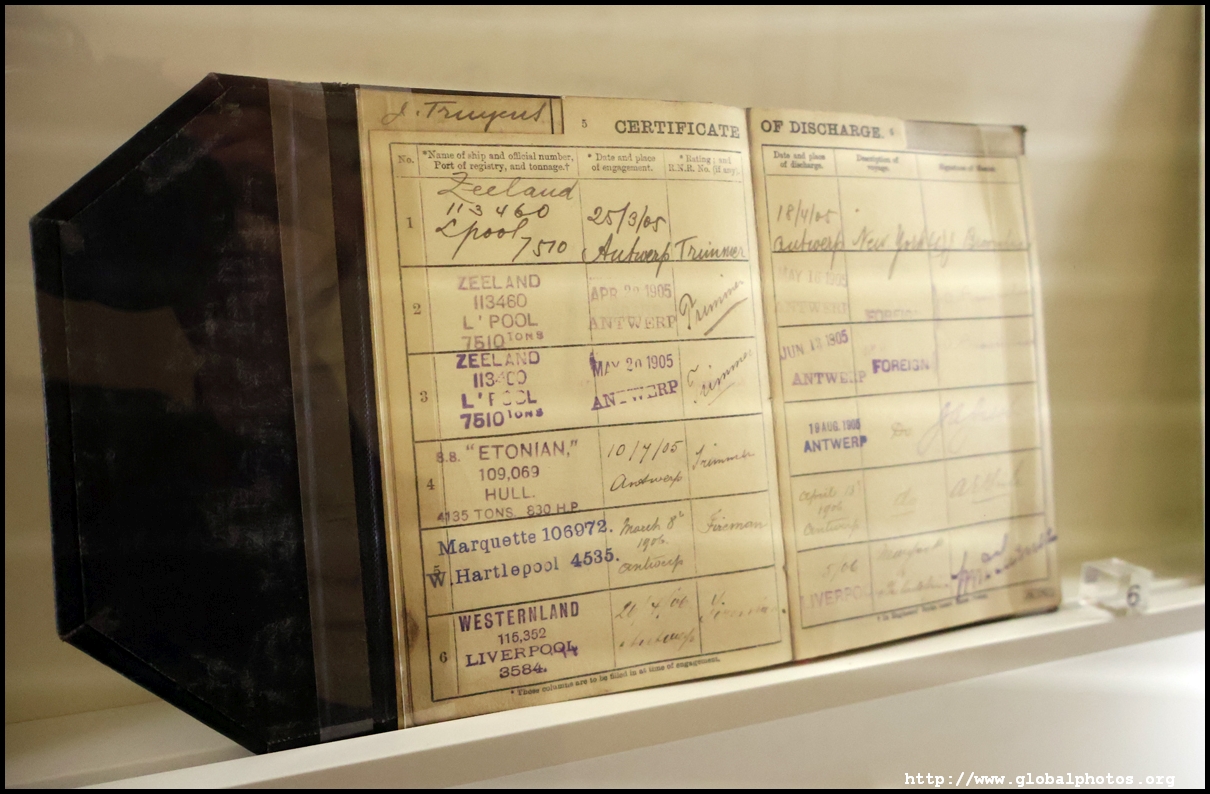 J. Truyens
5 CERTIFICATE OF DISCHARGE. 6
No.
*Name of ship and official number,
Port of registry, and tonnage.†
* Date and place
of engagement.
* Rating; and
R.N.R. No. (if any).
Date and place
of discharge.
Description of
voyage.
1
Zeeland
113460
Lpool
7510
25/3/05
Antwerp
Trimmer
18/4/05
Antwerp
New York
2
ZEELAND
113460
L'POOL
7510 TONS
1905
ANTWERP
Trimmer
MAY 16 1905
ANTWERP
FOREIGN
3
ZEELAND
L'POOL
7510 TONS
MAY 20 1905
ANTWERP
Trimmer
JUN 13 1905
ANTWERP
FOREIGN
4
S.S. "ETONIAN,"
109,069
HULL.
4135 TONS. 830 H.P.
10/7/05
Antwerp
Trimmer
19 AUG. 1905
ANTWERP
Do.
5
Marquette 106972.
W. Hartlepool 4535.
March 8th
1906.
Antwerp
Fireman
April
1906
Antwerp
do
6
WESTERNLAND
115,352
LIVERPOOL
3584.
Antwerp
Fireman
5/06
LIVERPOOL
* These columns are to be filled in at time of engagement.
6
http://www.globalphotos.org